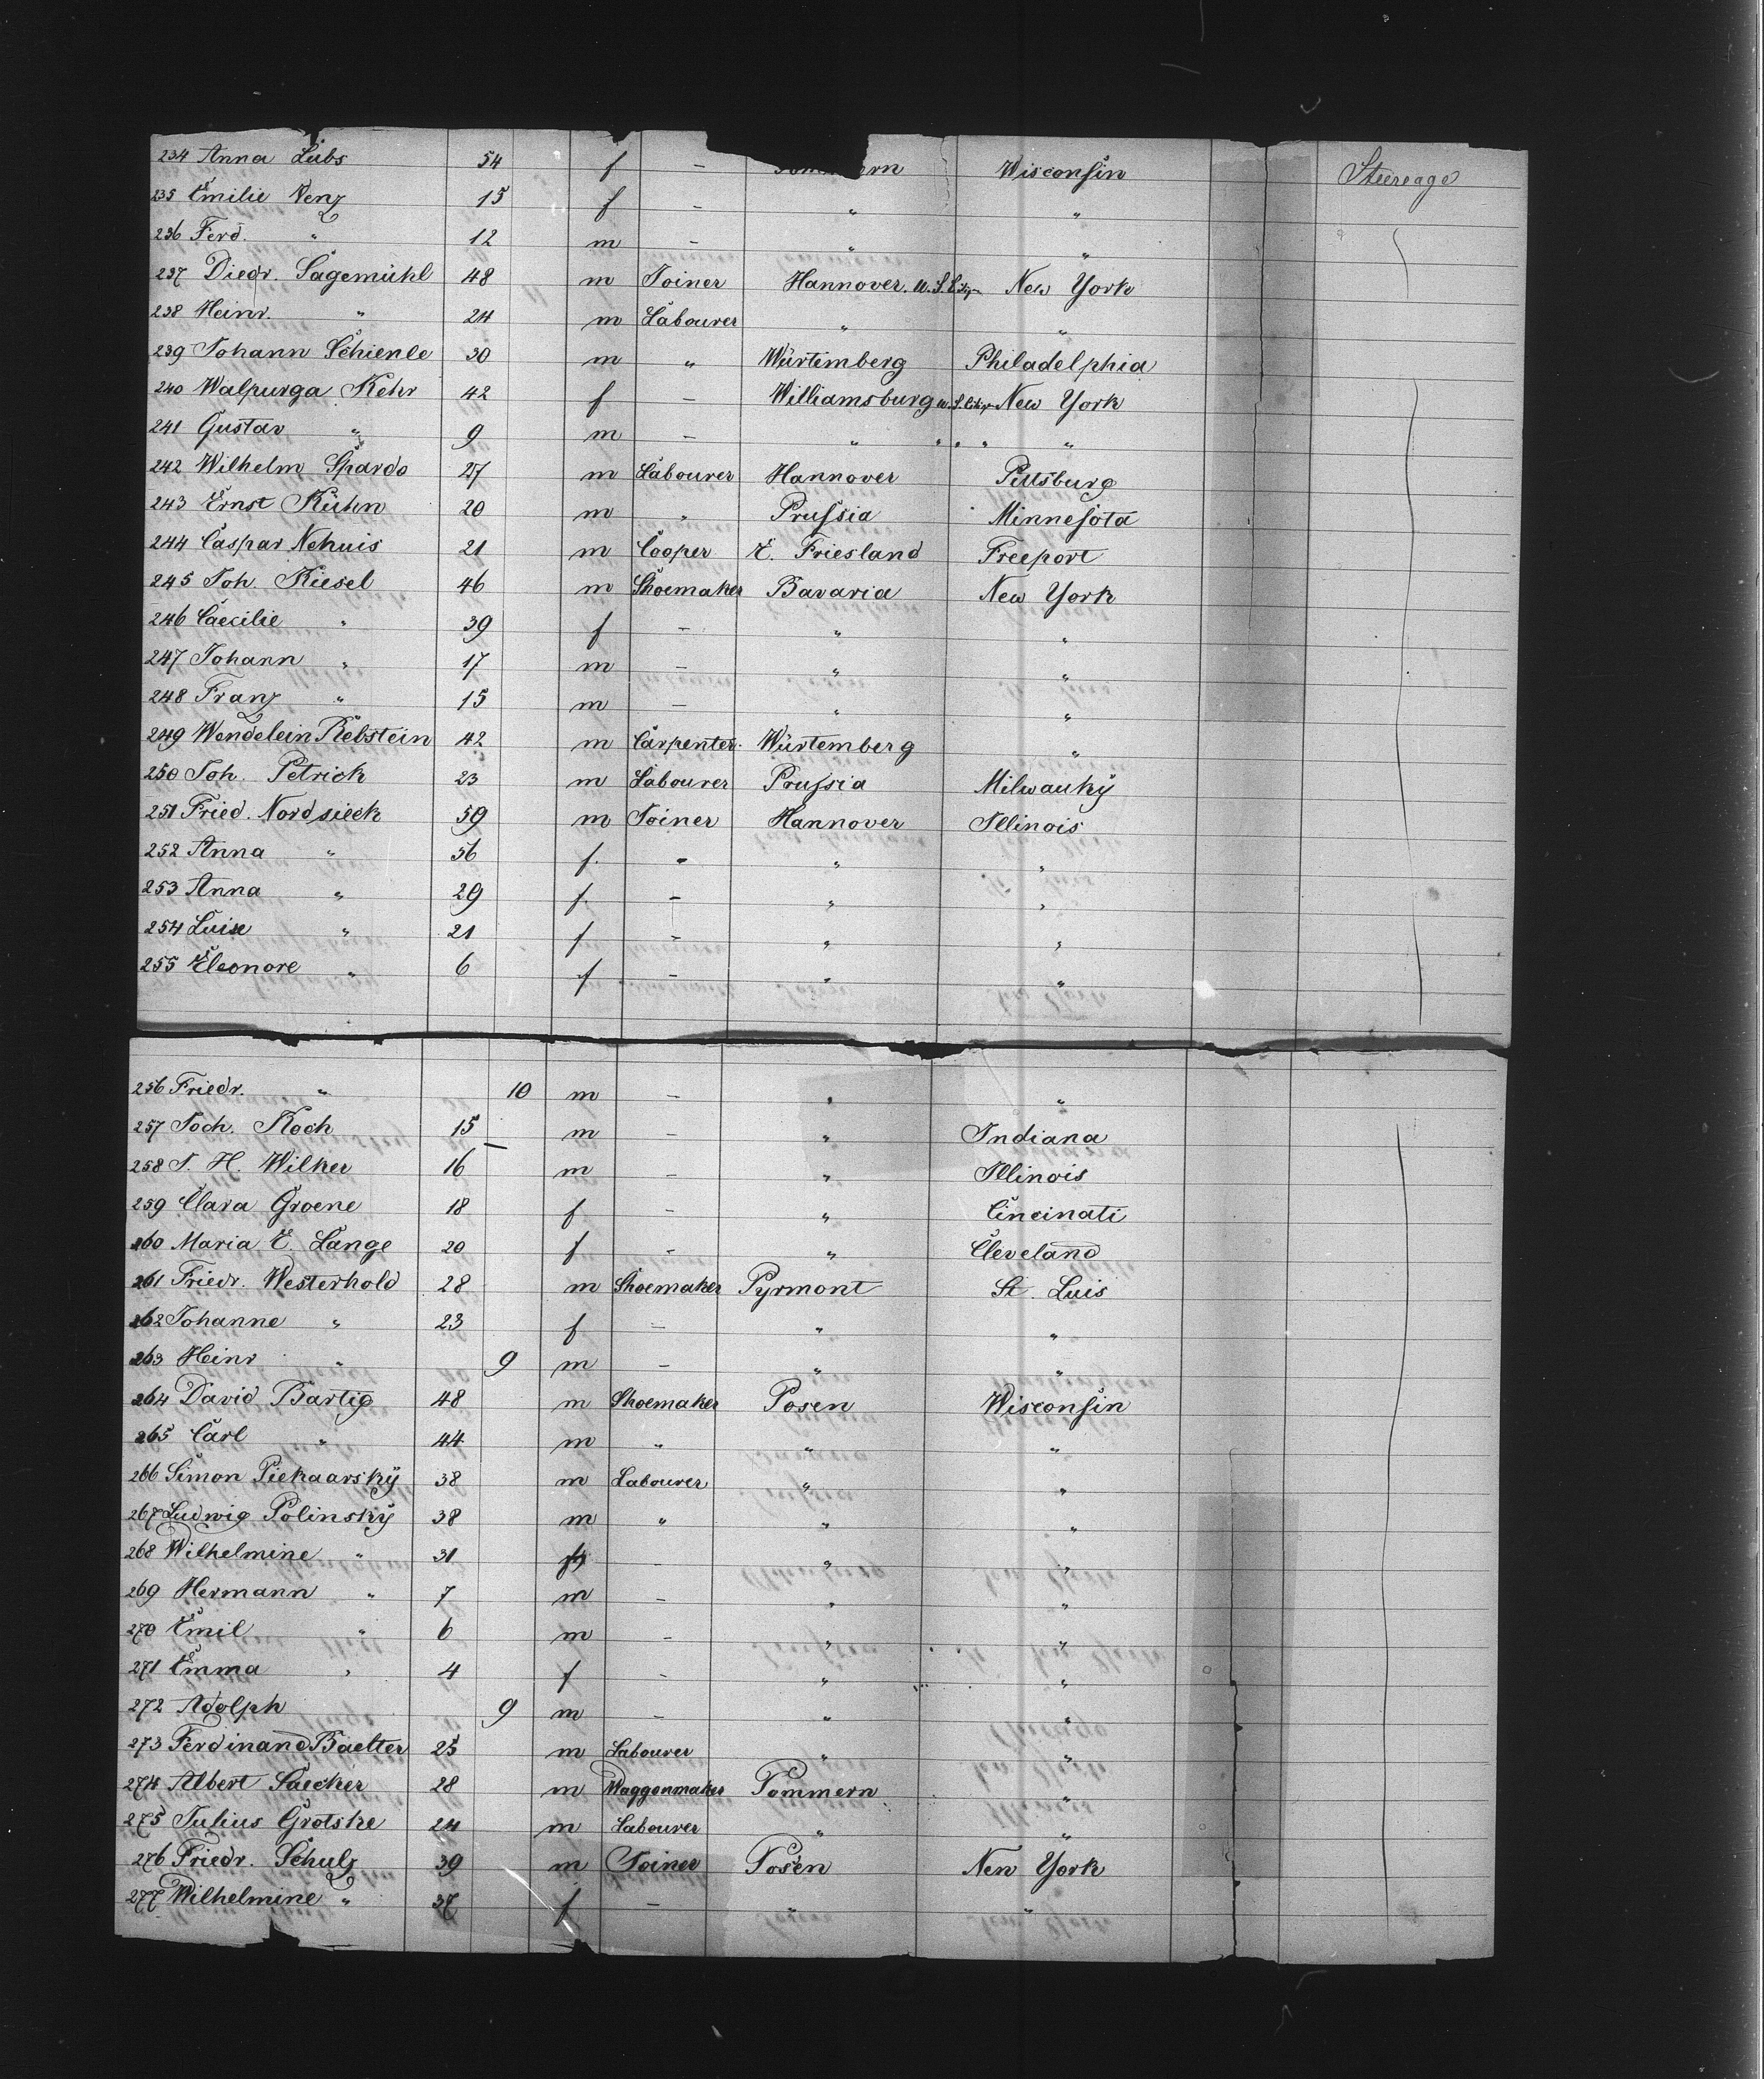 234 Anna Lübs 54 f - Wisconsin Steereage
235 Emilie Venz 15 f - " "
236 Ferd. " 12 m - " "
237 Diedr. Sagemühl 48 m Joiner Hannover. U.S. New York
238 Heinr. " 24 m Labourer " "
239 Johann Schienle 30 m " Würtemberg Philadelphia
240 Walpurga Kehr 42 f - Williamsburg U.S. New York
241 Gustav " 9 m - " " " " "
242 Wilhelm Spardo 27 m Labourer Hannover Pittsburg
243 Ernst Kühn 20 m " Prussia Minnesota
244 Caspar Nehuis 21 m Cooper E. Friesland Freeport
245 Joh. Kiesel 46 m Shoemaker Bavaria New York
246 Caecilie " 39 f - " "
247 Johann " 17 m - " "
248 Franz " 15 m - " "
249 Wendelein Rebstein 42 m Carpenter. Würtemberg "
250 Joh. Petrick 23 m Labourer Prussia Milwauky
251 Fried. Nordsieck 59 m Joiner Hannover Illinois
252 Anna " 56 f. - " "
253 Anna " 29 f. - " "
254 Luise " 21 f - " "
255 Eleonore " 6 f - " "
256 Friedr. " 10 m - " "
257 Joch. Koch 15 m - " Indiana
258 J. H. Wilker 16 m - " Illinois
259 Clara Groene 18 f - " Cincinati
260 Maria E. Lange 20 f - " Cleveland
261 Friedr. Westerhold 28 m Shoemaker Pyrmont St. Luis
262 Johanne " 23 f - " "
263 Heinr " 9 m - " "
264 David Bartig 48 m Shoemaker Posen Wisconsin
265 Carl " 44 m " " "
266 Simon Piekaarsky 38 m Labourer " "
267 Ludwig Polinsky 38 m " " "
268 Wilhelmine " 31 f - " "
269 Hermann " 7 m - " "
270 Emil " 6 m - " "
271 Emma " 4 f - " "
272 Adolph 9 m - " "
273 Ferdinand Baelter 25 m Labourer " "
274 Albert Saecker 28 m Waggonmaker Pommern "
275 Julius Grotske 24 m Labourer " "
276 Friedr. Schulz 39 m Joiner Posen New York
277 Wilhelmine " 37 f - " "